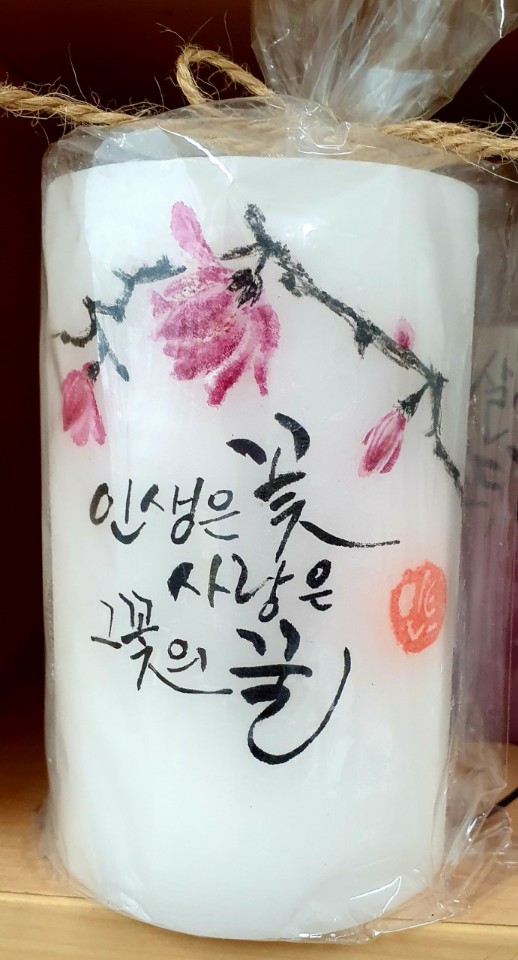 인생은 꽃
사랑은
그 꽃의 꿀